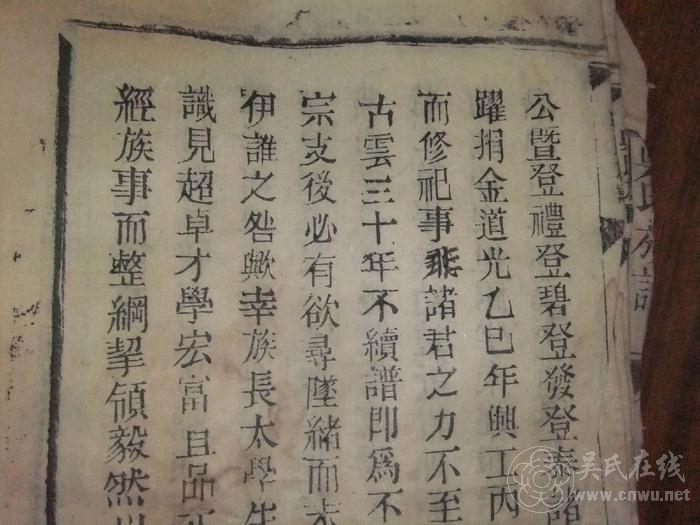 公暨登禮登碧登發登泰諸
躍捐金道光乙巳年興工丙
而修祀事乘諸君之力不至
古雲三十年不續譜即為不
宗支後必有欲尋墜緒而
伊誰之咎歟幸族長太學生
識見超卓才學宏富且品
經族事而整綱挈領毅然
吳氏在线
www.cnwu.net